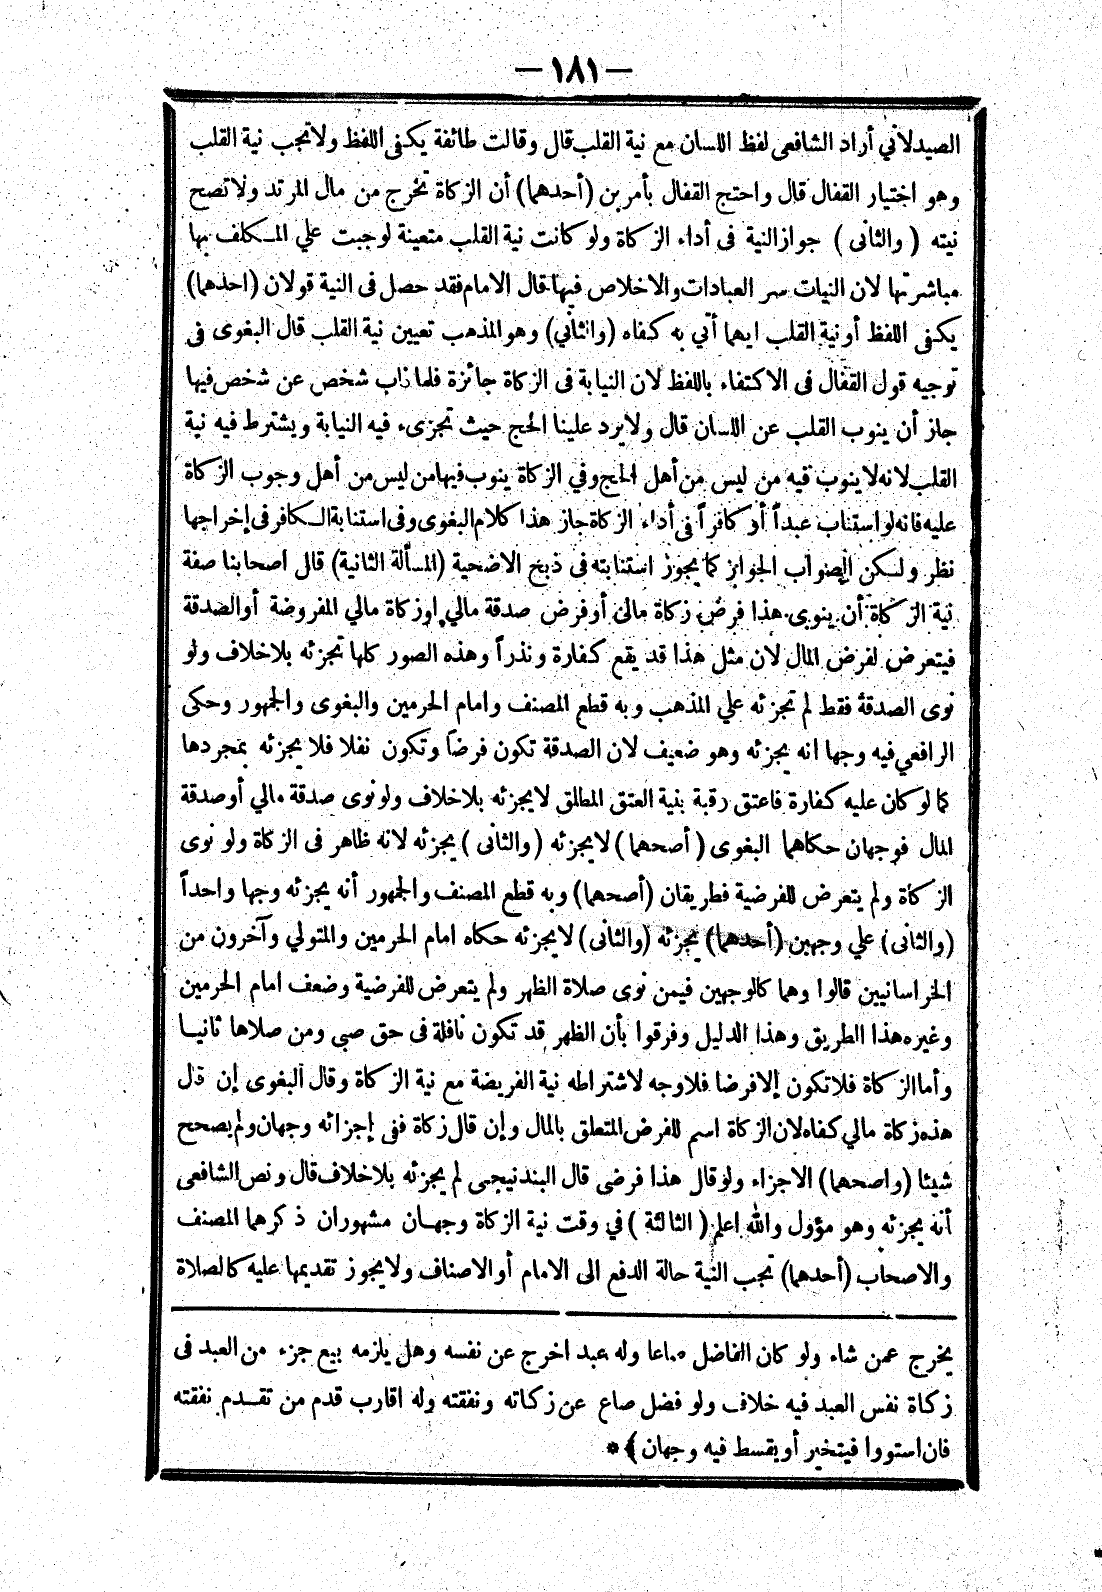 — ١٨١ —
الصيدلاني أراد الشافعى لفظ اللسان مع نية القلب قال وقالت طائفة يكفى اللفظ ولا تجب نية القلب
وهو اختيار القفال قال واحتج القفال بأمرين (أحدهما) أن الزكاة تخرج من مال المرتد ولا تصح
نيته (والثانى) جواز النية فى أداء الزكاة ولو كانت نية القلب متعينة لوجبت علي المكلف بها
مباشرتها لان النيات سر العبادات والاخلاص فيها قال الامام فقد حصل فى النية قولان (احدهما)
يكفى اللفظ أو نية القلب ايهما أتي به كفاه (والثاني) وهو المذهب تعيين نية القلب قال البغوى فى
توجيه قول القفال فى الاكتفاء باللفظ لان النيابة فى الزكاة جائزة فلما ناب شخص عن شخص فيها
جاز أن ينوب القلب عن اللسان قال ولا يرد علينا الحج حيث تجزىء فيه النيابة ويشترط فيه نية
القلب لانه لا ينوب فيه من ليس من أهل الحج وفي الزكاة ينوب فيها من ليس من أهل وجوب الزكاة
عليه فانه لو استناب عبداً أو كافراً فى أداء الزكاة جاز هذا كلام البغوى وفى استنابة الكافر فى إخراجها
نظر ولكن الصواب الجواز كما يجوز استنابته فى ذبح الاضحية (المسألة الثانية) قال اصحابنا صفة
نية الزكاة أن ينوى هذا فرض زكاة مالى أو فرض صدقة مالي او زكاة مالي المفروضة أو الصدقة
فيتعرض لفرض المال لان مثل هذا قد يقع كفارة ونذراً وهذه الصور كلها تجزئه بلا خلاف ولو
نوى الصدقة فقط لم تجزئه علي المذهب وبه قطع المصنف وامام الحرمين والبغوى والجمهور وحكى
الرافعي فيه وجها انه يجزئه وهو ضعيف لان الصدقة تكون فرضاً وتكون نفلا فلا يجزئه بمجردها
كما لو كان عليه كفارة فاعتق رقبة بنية العتق المطلق لا يجزئه بلا خلاف ولو نوى صدقة مالي أو صدقة
المال فوجهان حكاهما البغوى (أصحهما) لا يجزئه (والثانى) يجزئه لانه ظاهر فى الزكاة ولو نوى
الزكاة ولم يتعرض للفرضية فطريقان (أصحهما) وبه قطع المصنف والجمهور أنه يجزئه وجها واحداً
(والثانى) علي وجهين (أحدهما) يجزئه (والثانى) لا يجزئه حكاه امام الحرمين والمتولي وآخرون من
الخراسانيين قالوا وهما كالوجهين فيمن نوى صلاة الظهر ولم يتعرض للفرضية وضعف امام الحرمين
وغيره هذا الطريق وهذا الدليل وفرقوا بأن الظهر قد تكون نافلة فى حق صبي ومن صلاها ثانيا
وأما الزكاة فلا تكون إلا فرضا فلا وجه لاشتراطه نية الفريضة مع نية الزكاة وقال البغوى إن قال
هذه زكاة مالي كفاه لان الزكاة اسم للفرض المتعلق بالمال وإن قال زكاة ففى إجزائه وجهان ولم يصحح
شيئا (واصحهما) الاجزاء ولو قال هذا فرضى قال البندنيجى لم يجزئه بلا خلاف قال ونص الشافعى
أنه يجزئه وهو مؤول والله اعلم (الثالثة) في وقت نية الزكاة وجهان مشهوران ذكرهما المصنف
والاصحاب (أحدهما) تجب النية حالة الدفع الى الامام أو الاصناف ولا يجوز تقديمها عليه كالصلاة
يخرج عمن شاء ولو كان الفاضل صاعا وله عبد اخرج عن نفسه وهل يلزمه بيع جزء من العبد فى
زكاة نفس العبد فيه خلاف ولو فضل صاع عن زكاته ونفقته وله اقارب قدم من تقدم نفقته
فان استووا فيتخير أو يقسط فيه وجهان﴾ *